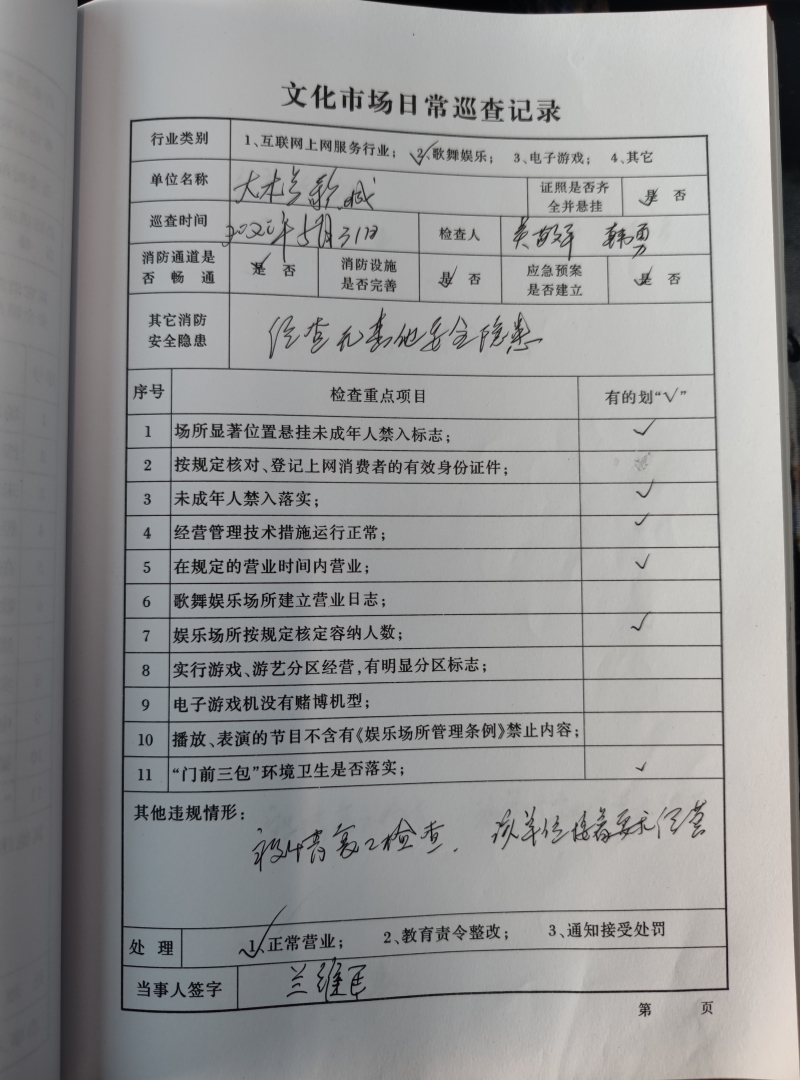 文化市场日常巡查记录
行业类别 1、互联网上网服务行业; 2、歌舞娱乐; 3、电子游戏; 4、其它
单位名称 大木兰歌城 证照是否齐全并悬挂 是 否
巡查时间 2022年5月31日 检查人 韩勇
消防通道是否畅通 是 否 消防设施是否完善 是 否 应急预案是否建立 是 否
其它消防安全隐患 经查无其他安全隐患
序号 检查重点项目 有的划“√”
1 场所显著位置悬挂未成年人禁入标志; √
2 按规定核对、登记上网消费者的有效身份证件;
3 未成年人禁入落实; √
4 经营管理技术措施运行正常; √
5 在规定的营业时间内营业; √
6 歌舞娱乐场所建立营业日志;
7 娱乐场所按规定核定容纳人数; √
8 实行游戏、游艺分区经营,有明显分区标志;
9 电子游戏机没有赌博机型;
10 播放、表演的节目不含有《娱乐场所管理条例》禁止内容;
11 “门前三包”环境卫生是否落实; √
其他违规情形:
复工检查. 该单位按着要求经营
处理 1、正常营业; 2、教育责令整改; 3、通知接受处罚
当事人签字 兰维民
第 页